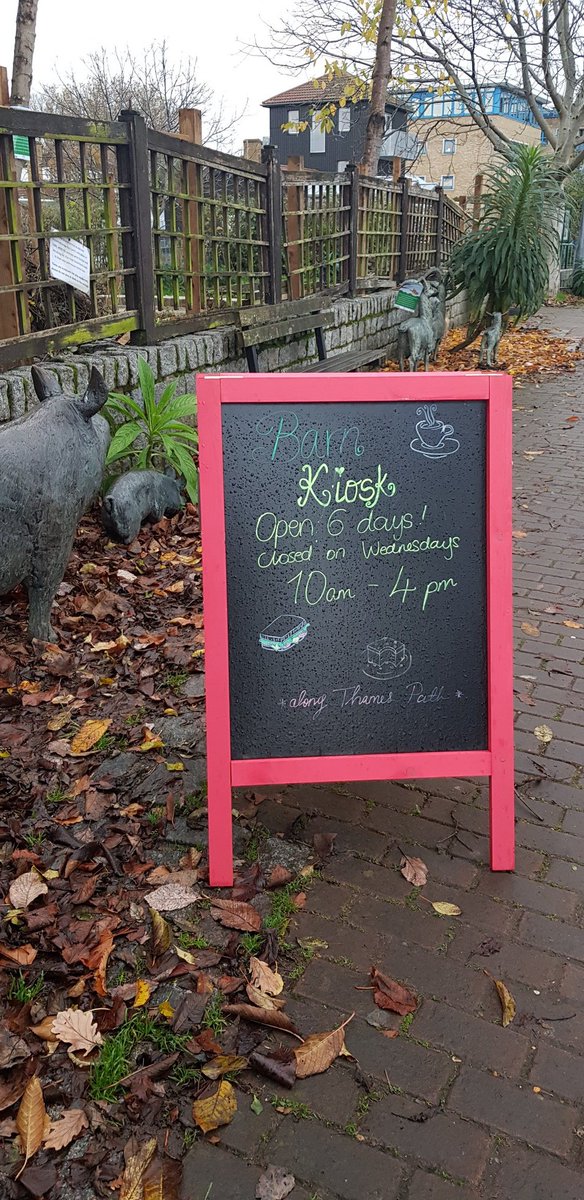 Barn
Kiosk
Open 6 days!
Closed on Wednesdays
10am - 4pm
*along Thames Path*